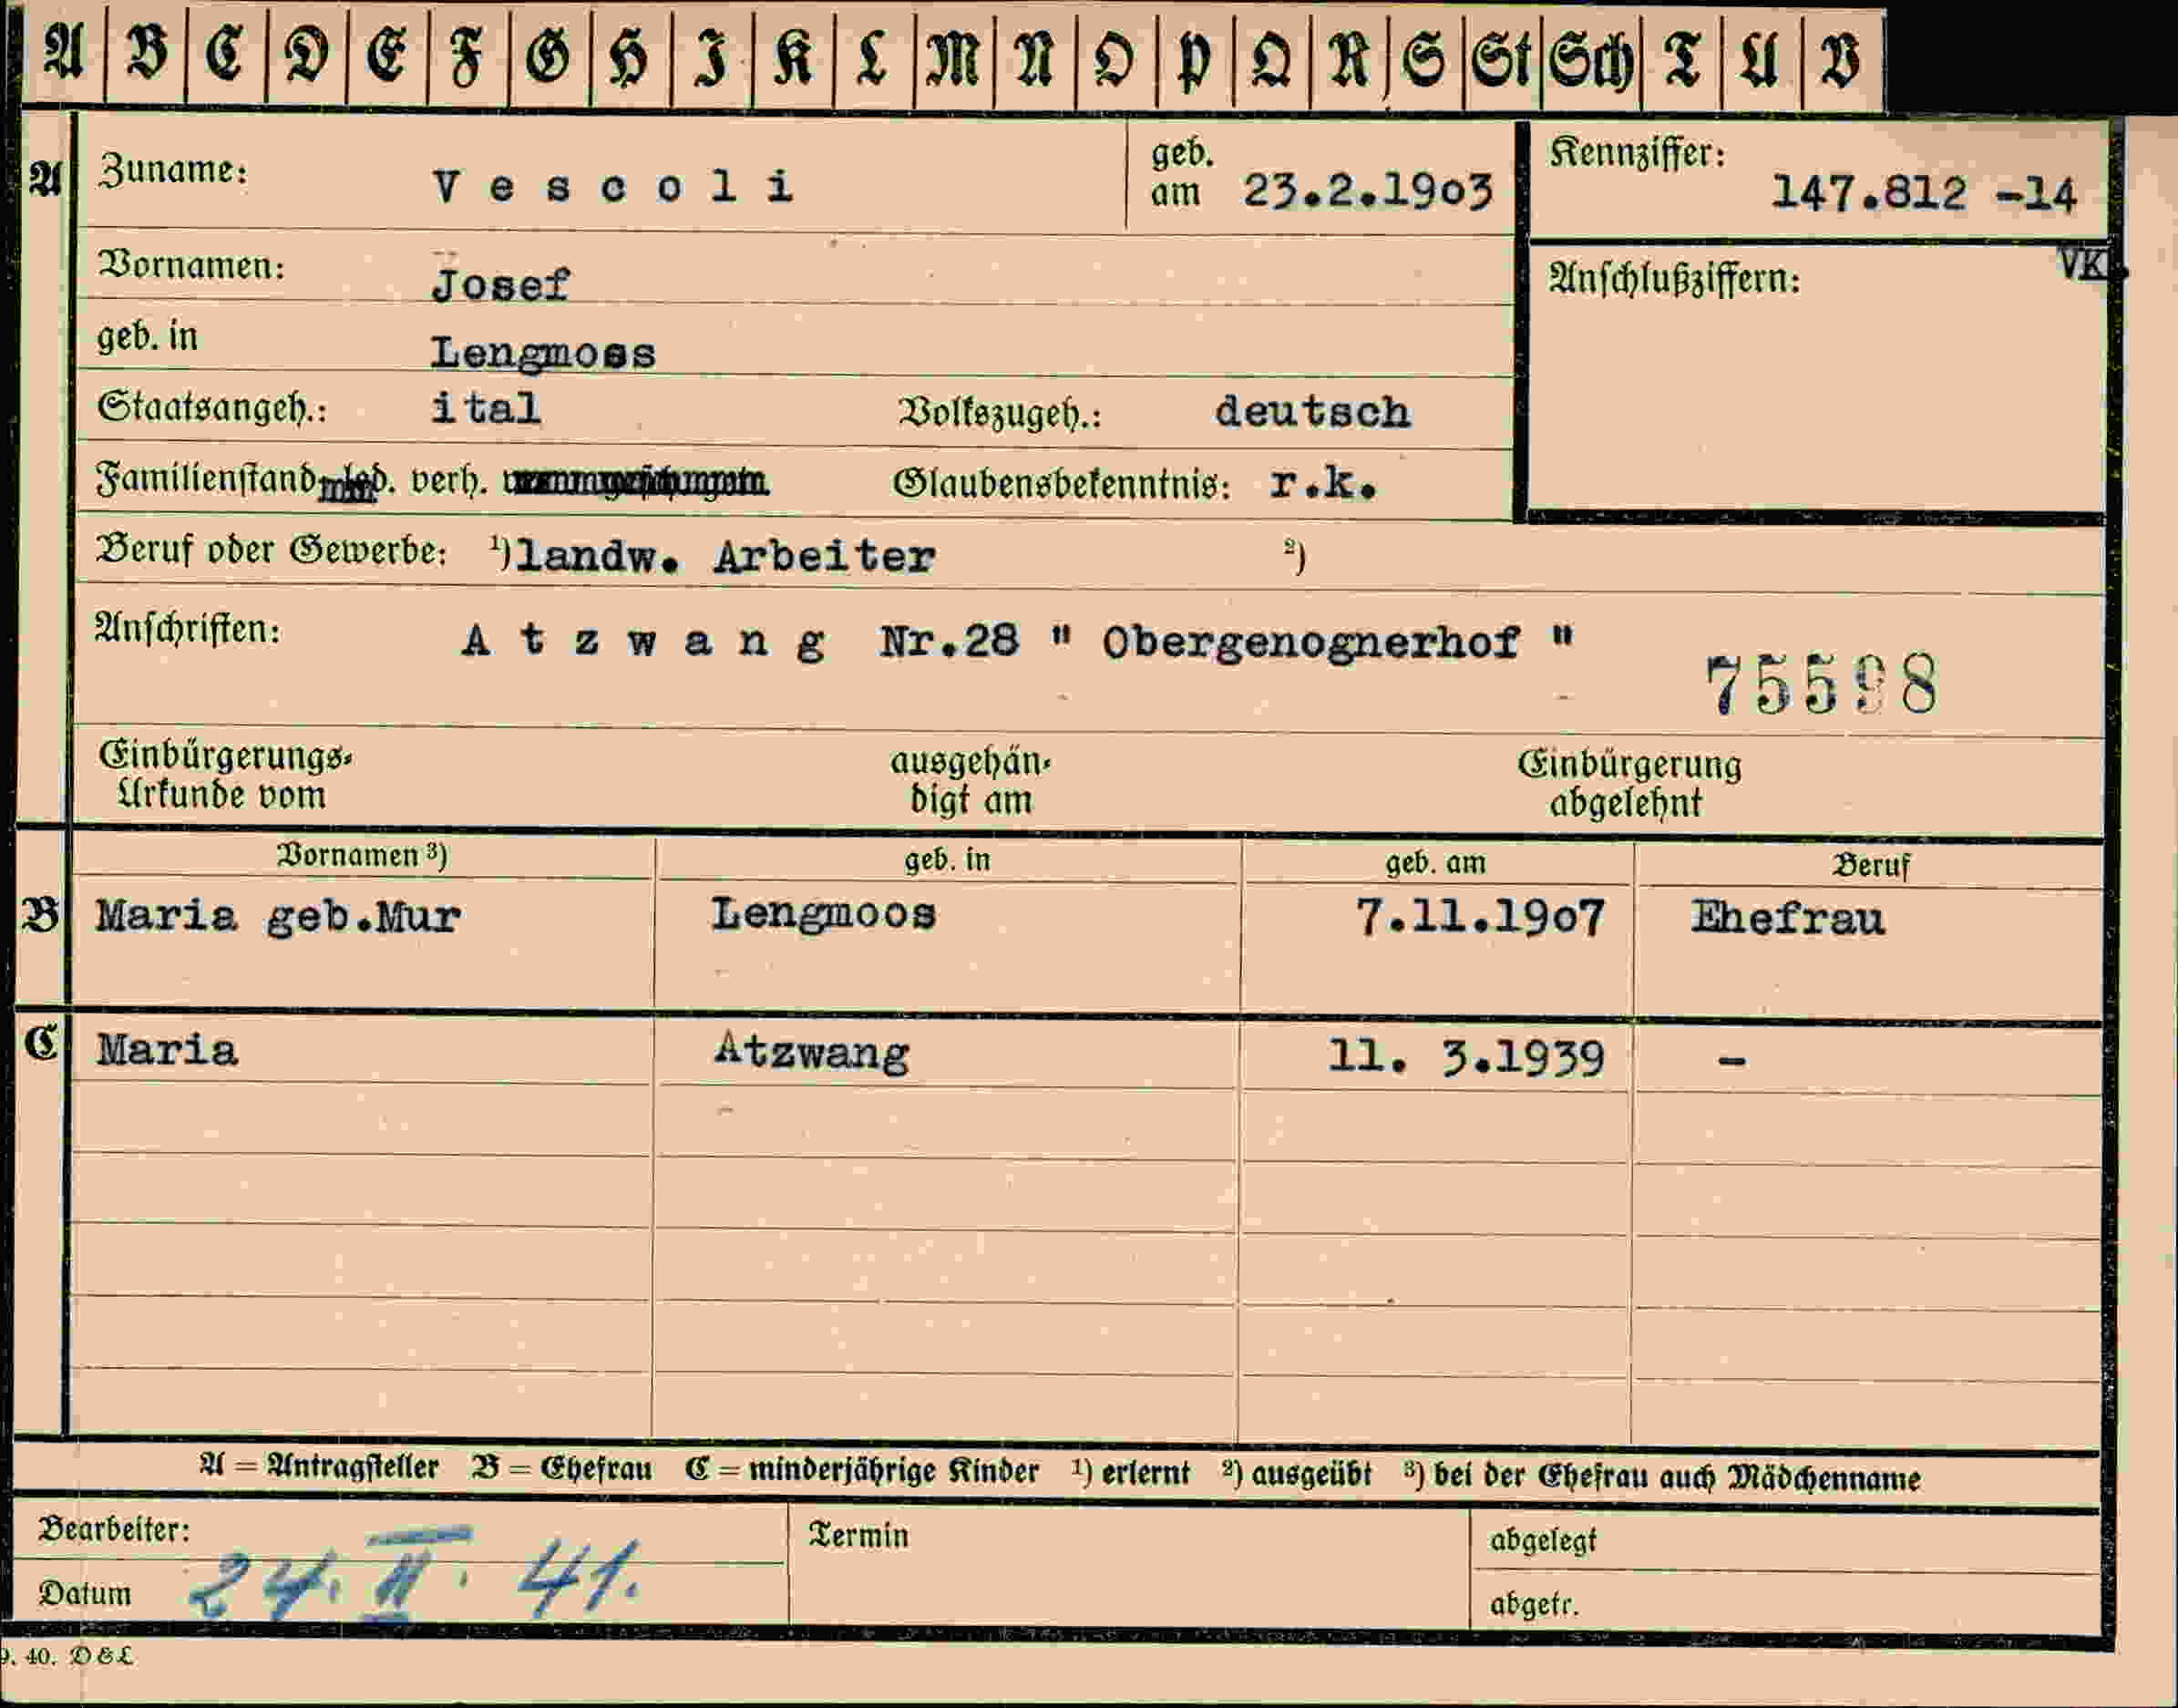 A B C D E F G H I K L M N O P Q R S St Sch T U V
A Zuname: Vescoli geb. am 23.2.1903 Kennziffer: 147.812 -14
Vornamen: Josef Anschlußziffern: VK
geb. in Lengmoss
Staatsangeh.: ital Volkszugeh.: deutsch
Familienstand led. verh. Glaubensbekenntnis: r.k.
Beruf oder Gewerbe: ¹) landw. Arbeiter ²)
Anschriften: Atzwang Nr.28 " Obergenognerhof "
75598
Einbürgerungs- ausgehän- Einbürgerung
Urkunde vom digt am abgelehnt
Vornamen ³) geb. in geb. am Beruf
B Maria geb.Mur Lengmoos 7.11.1907 Ehefrau
C Maria Atzwang 11. 3.1939 -
A = Antragsteller B = Ehefrau C = minderjährige Kinder ¹) erlernt ²) ausgeübt ³) bei der Ehefrau auch Mädchenname
Bearbeiter: Termin abgelegt
Datum 24. II. 41. abgetr.
9. 40. D&L